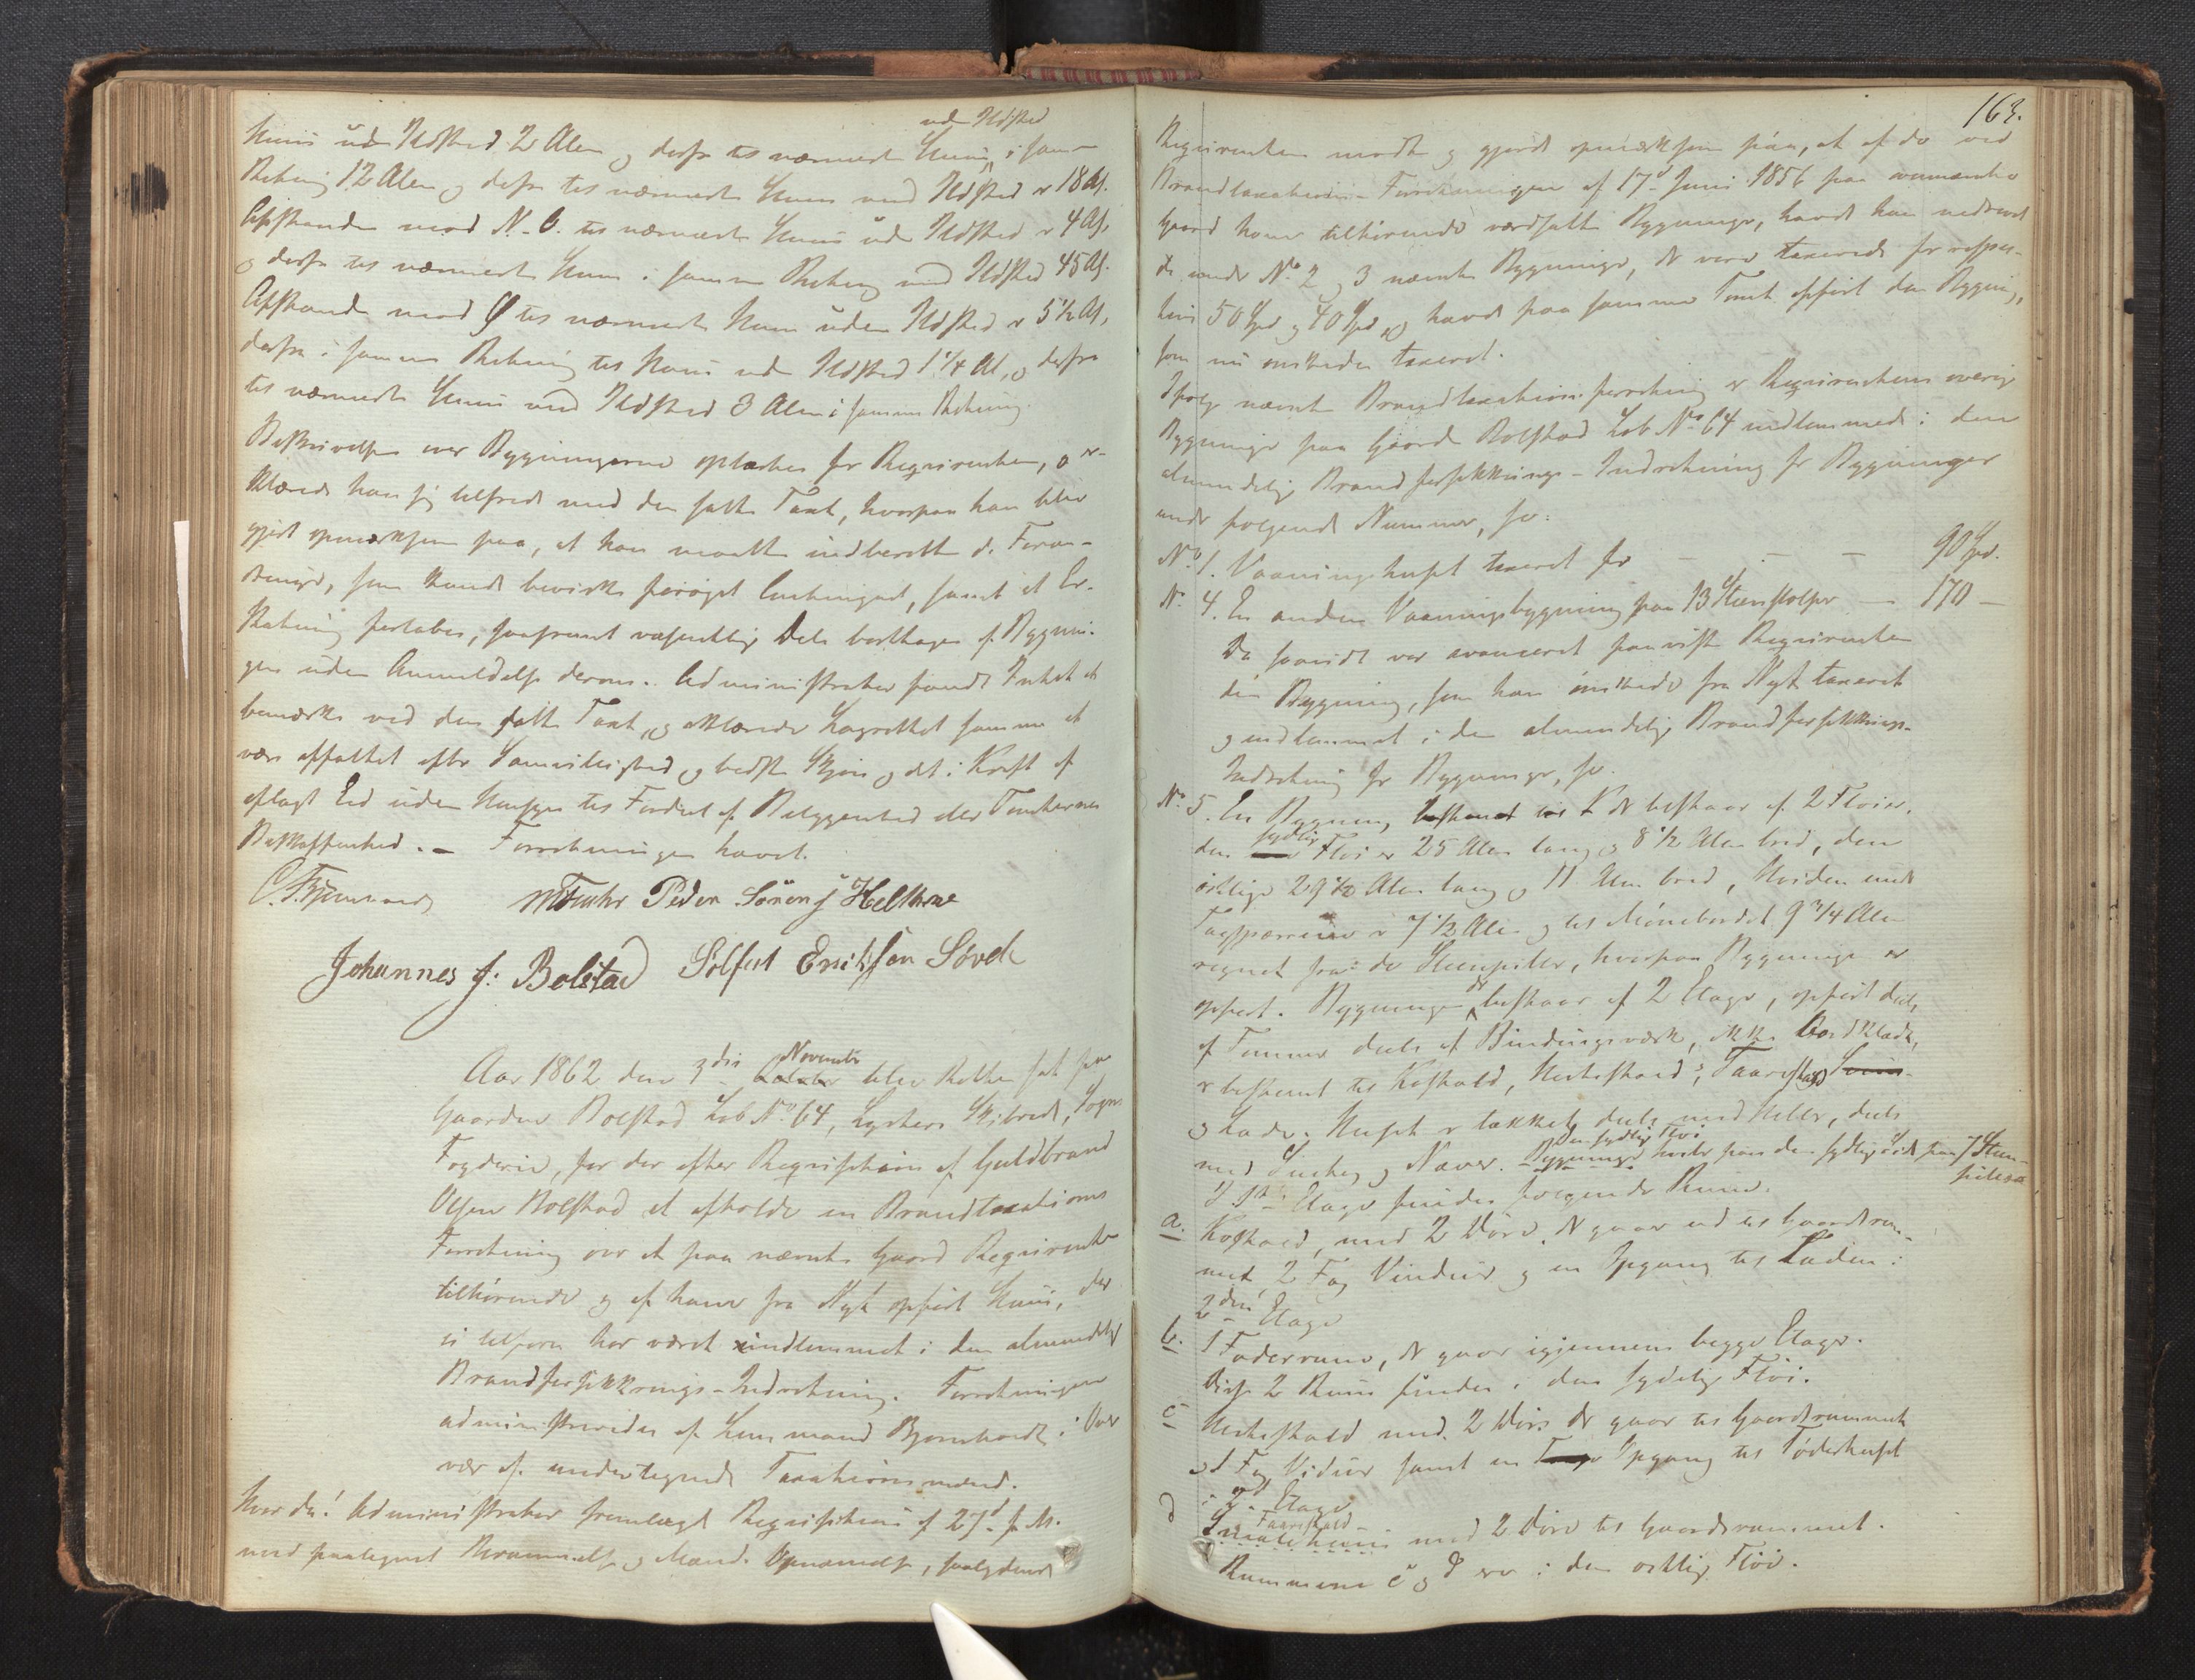 Huus uden Ildsted 2 Alen og derfra til nærmeste Huus uden Ildsted i samme
Retning 12 Alen og derfra til nærmeste Huus med Ildsted er 18 Al.
Afstanden mod N.O. til nærmeste Huus uden Ildsted er 4 Al,
og derfra til nærmeste Huus i samme Retning med Ildsted 45 Al.
Afstanden mod Ø til nærmeste Huus uden Ildsted er 5 1/2 Al,
derfra i samme Retning til Huus uden Ildsted 1 1/4 Al, og derfra
til nærmeste Huus med Ildsted 3 Alen i samme Retning.
Beskrivelsen over Bygningerne oplæstes for Reqvirenten, og er-
klærede han sig tilfreds med den satte Taxt, hvorpaa han blev
gjort opmærksom paa, at han maatte indberette de Foran-
dringer, som kunde bevirke forøget Contingent, samt at Er-
statning fortabes, saafremt væsentlige Dele borttages af Bygnin-
gen uden Anmeldelse derom. Administrator fandt Intet at
bemærke ved den satte Taxt, og erklærede Lagrettet samme at
være affattet efter Samvittighed og bedste Skjøn og det i Kraft af
aflagt Eed uden Hensyn til Fordeel af Beliggenhed eller Tomternes
Beskaffenhed. – Forretningen hævet.
Peder Sørensj Helthne
Johannes J: Bolstad Solfest Erichsøn Søvde
Aar 1862 den 3die November blev Retten sat paa
Gaarden Bolstad Løb No 64, Lysters Skibrede, Sogns
Fogderie, for der efter Reqvisition af Guldbrand
Olsen Bolstad at afholde en Brandtaxations
Forretning over et paa nævnte Gaard Reqvirenten
tilhørende og af ham fra Nyt opført Huus, der
ei tilforn har været indlemmet i den almindelige
Brandforsikkrings-Indretning. Forretningen
administreredes af Lensmand Bjørnhardt i Over
vær af undertegnede Taxationsmænd.
Hvorda! Administrator fremlagde Reqvisition af 27d f. M.
med paategnet Berammelse og Mænds Opnævnelse, saalydende
163.
Reqvirenten mødte og gjorde opmærksom paa, at af de ved
Brandtaxations-Forretningen af 17d Juni 1856 paa ovennævnte
Gaard ham tilhørende værdsatte Bygninger, havde han nedrevet
de under No 2 og 3 nævnte Bygninger, der vare taxerede for respec-
tive 50 Spd og 40 Spd, og havde paa samme Tomt opført den Bygning,
som nu ønskedes taxeret.
Ifølge nævnte Brandtaxationsforretning er Reqvirentens øvrige
Bygninger paa Gaarden Bolstad Løb No 64 indlemmede i den
almindelige Brandforsikkrings-Indretning for Bygninger
under følgende Nummer, so:
No 1. Vaaningshuset taxeret for – – – 90 Spd.
No 4. En anden Vaaningsbygning paa 13 Steenstolper – 170 –
Da saavidt var avanceret paaviste Reqvirenten
den Bygning, som han ønskede fra Nyt taxeret
og indlemmet i den almindelige Brandforsikkrings-
Indretning for Bygninger, so.
No 5. En Bygning der bestaaer af 2 Fløie,
den sydlige Fløi er 25 Alen lang og 8 1/2 Alen bred, den
østlige 29 1/2 Alen lang og 11 Alen bred, Høiden under
Tagsparrerne er 7 1/2 Alen og til Mønebordet 9 3/4 Alen
regnet fra de Steenpiller, hvorpaa Bygningen er
opført. Bygningen der bestaaer af 2 Etager, opført deels
af Tømmer deels af Bindingsværk, ikke bordklædt,
er bestemt til Kostald, Hestestald, Faarestald
og Lade. Huset er tækket deels med Heller, deels
med Sutag og Næver. Den sydlige Fløi hviler paa den sydlige Side paa 7 Steen-
pillere
I 1ste Etage findes følgende Rum.
a. Kostald, med 2 Døre, der gaaer ud til Gaardsrum-
met, 2 Fag Vinduer og en Opgang til Laden i
2den Etage
b. 1 Foderrum, der gaaer igjennem begge Etager.
Disse 2 Rum findes i den sydelige Fløi.
c Hestestald med 2 Døre der gaaer til Gaardsrummet
og 1 Fag Vinduer samt en Opgang til Føderhuset
i 2d Etage
d Faarestald med 2 Døre til Gaardsrummet.
Rummene c og d ere i den østlige Fløi.